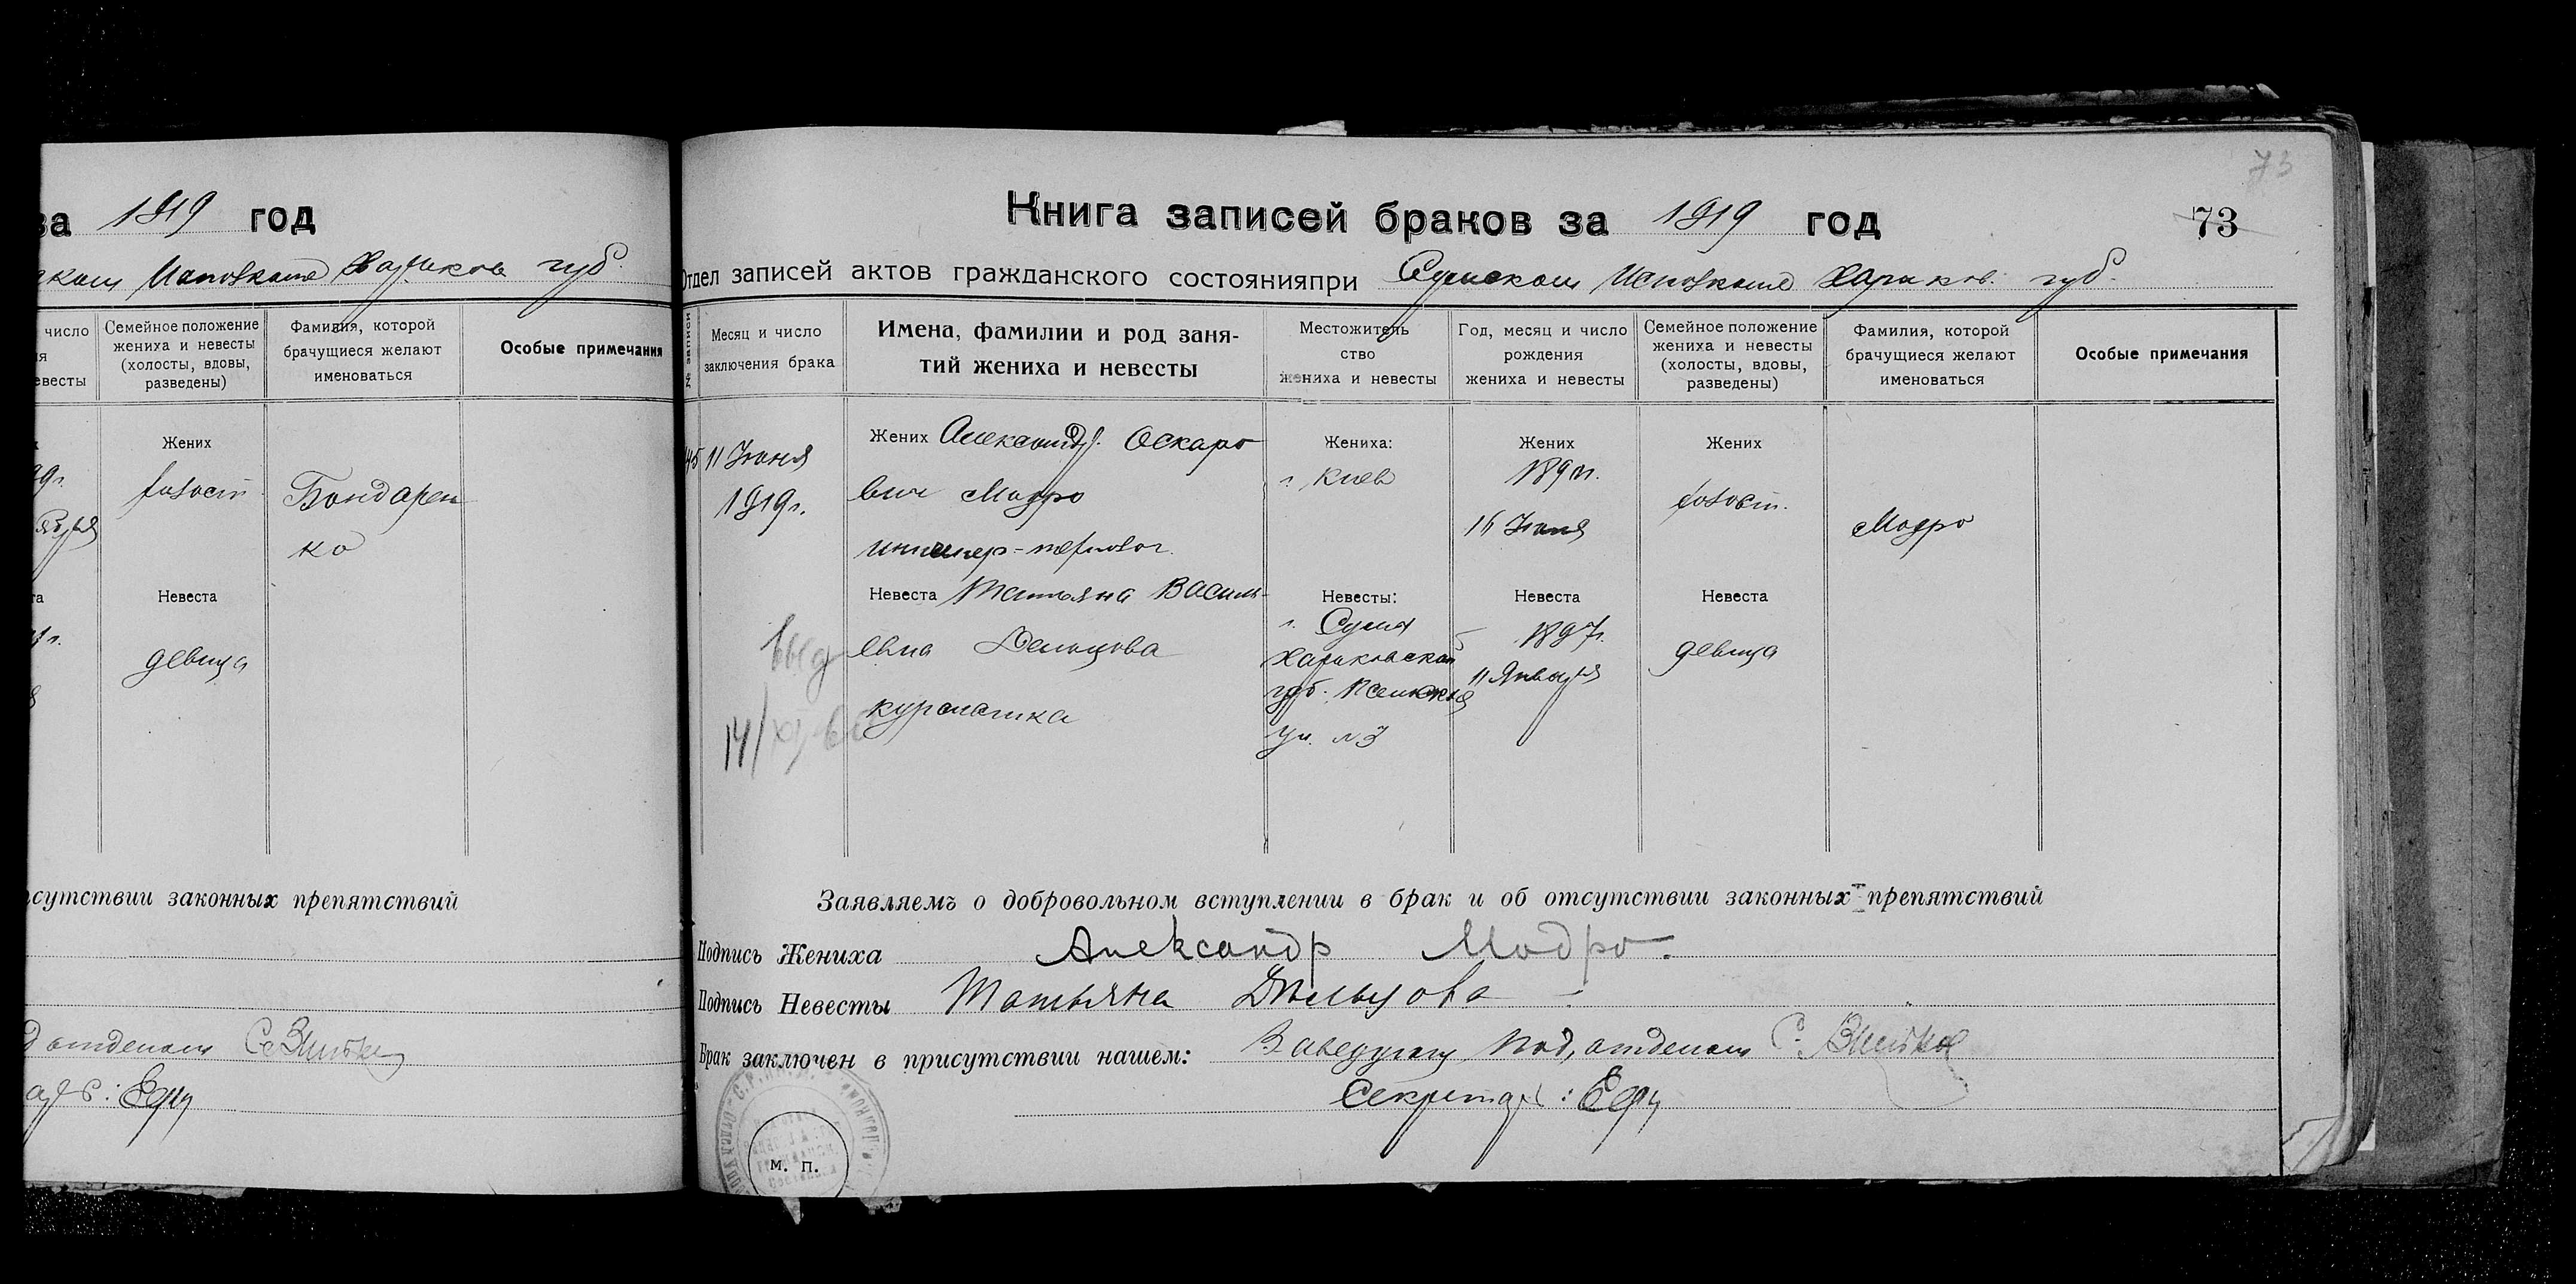 за 1919 год
Исполкоме Харьков губ.
число
Семейное положение
жениха и невесты
(холосты, вдовы,
разведены)
Фамилия, которой
брачущиеся желают
именоваться
Особые примечания
Жених
холост
Бондарен
ко
Невеста
девица
отсутствии законных препятствий
отделом
73
Книга записей браков за 1919 год
73
Отдел записей актов гражданского состоянияпри Сумском Исполкоме Харьков. губ.
№ записи
Месяц и число
заключения брака
Имена, фамилии и род заня-
тий жениха и невесты
Местожитель
ство
жениха и невесты
Год, месяц и число
рождения
жениха и невесты
Семейное положение
жениха и невесты
(холосты, вдовы,
разведены)
Фамилия, которой
брачущиеся желают
именоваться
Особые примечания
45
11 Июня
1919г.
Жених Александр Оскаро
вич Модро
инженер-технолог.
Невеста Татьяна Василь-
евна Дельцова
курсистка
Жениха:
г. Киев
Невесты:
г. Сумы
Харьковской
губ.
ул. №3
Жених
16 Июня
Невеста
1897г.
11 Января
Жених
холост.
Невеста
девица
Модро
Заявляемъ о добровольном вступлении в брак и об отсутствии законных препятствий
Подпись Жениха Александр Модро.
Подпись Невесты Татьяна Дѣльцова
Брак заключен в присутствии нашем: Заведующ под,отделом С.
Секретарь:
м. п.